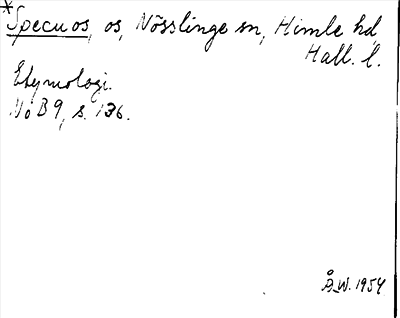 *Specuos, os, Nösslinge sn, Himle hd,
Hall. l.
Etymologi.
NoB 9, s. 136.
Å.W. 1954